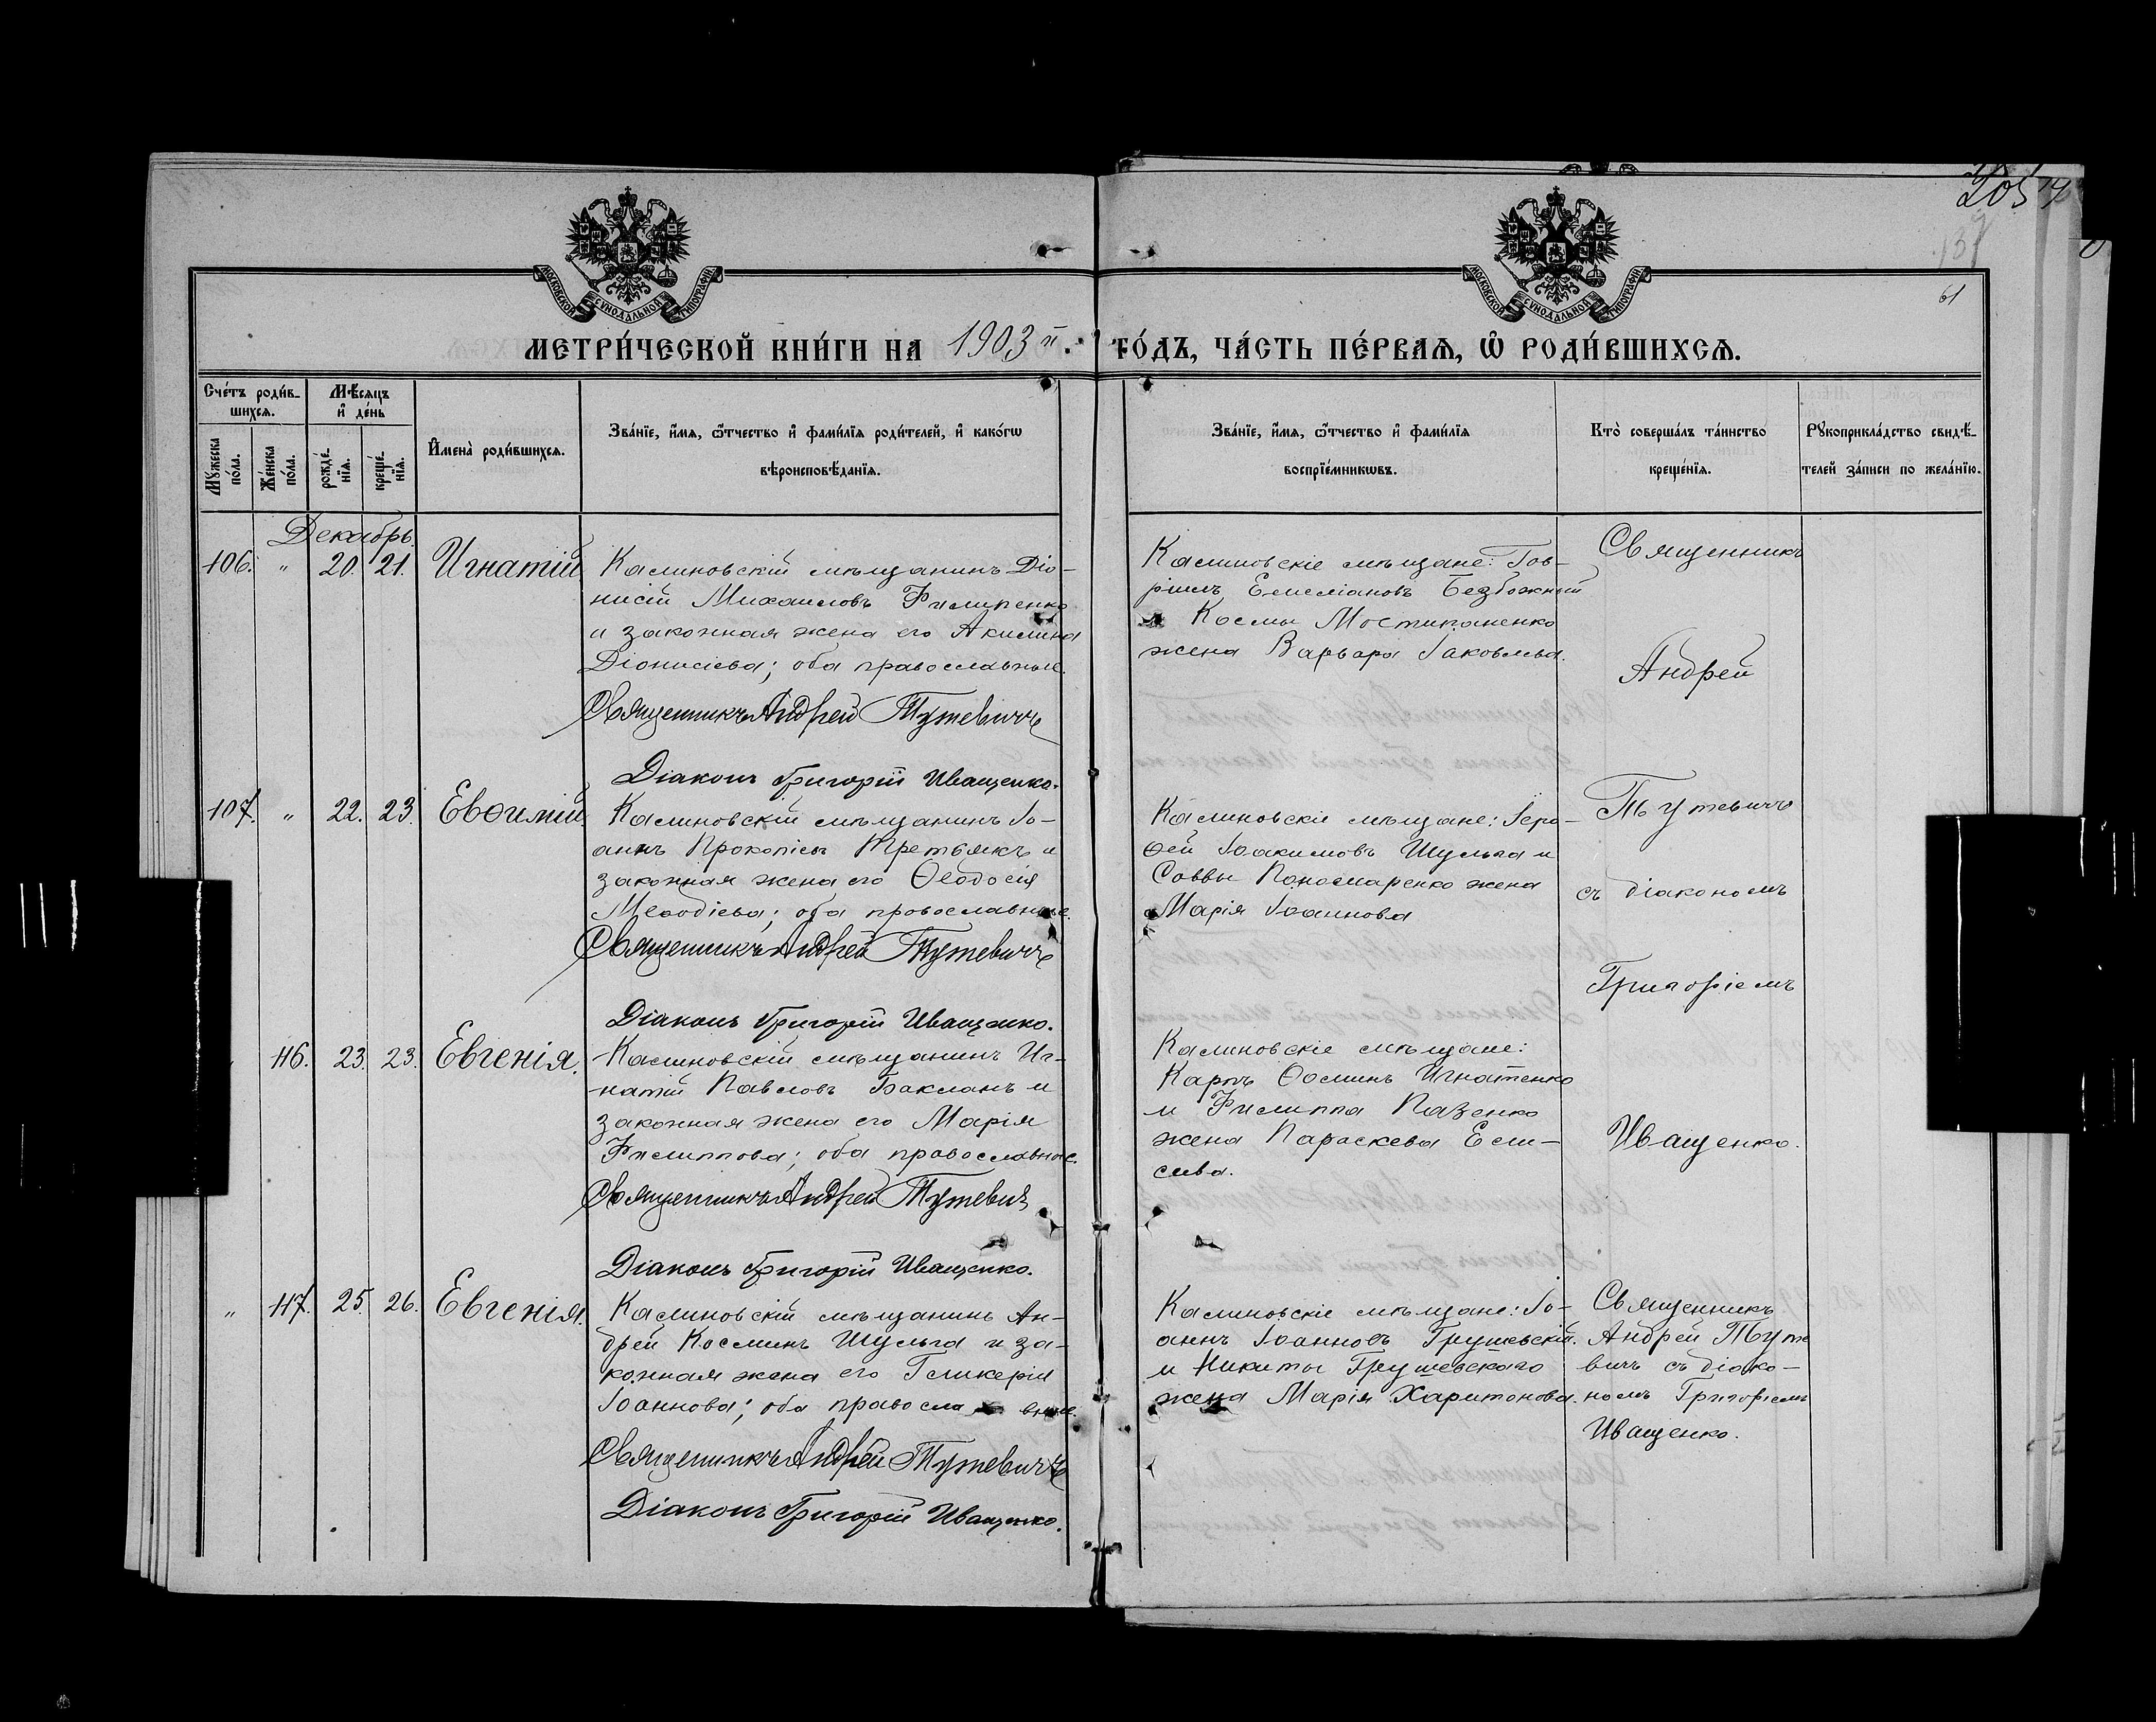 205
137
61
МОСКОВСКОЙ СѴНОДАЛЬНОЙ ТИПОГРАФІИ
МОСКОВСКОЙ СѴНОДАЛЬНОЙ ТИПОГРАФІИ
МЕТРИ́ЧЕСКОЙ КНИ́ГИ НА 1903й. ГО́ДЪ, ЧА́СТЬ ПЕ́РВАЯ, Ѡ РОДИ́ВШИХСЯ.
Сче́тъ роди́в-
шихся.
Мꙋжеска по́ла.
Же́нска по́ла.
Мѣ́сяцъ
и҆ де́нь
рожде́-
нїя.
креще́-
нїя.
И҆мена̀ роди́вшихся.
Зва́нїе, и҆́мя, ѻ҆́тчество и҆ фами́лїя роди́телей, и҆ како́гѡ
вѣроисповѣ́данїя.
Зва́нїе, и҆́мя, ѻ҆́тчество и҆ фами́лїя
воспрїе́мникѡвъ.
Кто̀ соверша́лъ та́инство
креще́нїя.
Рꙋкоприкла́дство свидѣ́-
телей за́писи по жела́нїю.
Декабрь.
106. " 20. 21. Игнатій
Калиновскій мѣщанинъ Діо-
нисій Михаиловъ Филипенко
и законная жена его Акилина
Діонисіева; оба православные.
Священникъ Андрей Тутевичъ
Діаконъ Григорій Иващенко.
Калиновскіе мѣщане: Гав-
ріилъ Емеліановъ Безбожный
и Космы Мостипаненко
жена Варвара Іаковлева.
Священникъ
Андрей
Тутевичъ
съ діакономъ
Григоріемъ
Иващенко.
107. " 22. 23. Евѳимій.
Калиновскій мѣщанинъ Іо-
аннъ Прокопіевъ Третьякъ и
законная жена его Ѳеодосія
Меѳодіева; оба православные.
Священникъ Андрей Тутевичъ
Діаконъ Григорій Иващенко.
Калиновскіе мѣщане: Іеро-
ѳей Іоакимовъ Шульга и
Саввы Пономаренко жена
Марія Іоаннова
" 116. 23. 23. Евгенія.
Калиновскій мѣщанинъ Иг-
натій Павловъ Бакланъ и
законная жена его Марія
Филиппова; оба православные.
Священникъ Андрей Тутевичъ
Діаконъ Григорій Иващенко.
Калиновскіе мѣщане:
Карпъ Ѳоминъ Игнатенко
и Филиппа Пазенко
жена Параскева Ели-
сеева.
" 117. 25. 26. Евгенія.
Калиновскій мѣщанинъ Ан-
дрей Косминъ Шульга и за-
конная жена его Гликерія
Іоаннова; оба православные.
Священникъ Андрей Тутевичъ
Діаконъ Григорій Иващенко.
Калиновскіе мѣщане: Іо-
аннъ Іоанновъ Грушевскій.
и Никиты Грушевскаго
жена Марія Харитонова.
Священникъ
Андрей Туте
вичъ съ діако-
номъ Григоріемъ
Иващенко.